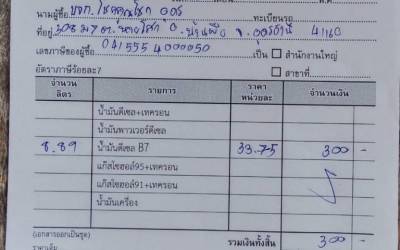 นามผู้ซื้อ บจก. โชคคูณโชค อุดร ทะเบียนรถ
ที่อยู่ 308 ม 7 ต. อ. บ้านผือ จ. อุดรธานี 41160
เลขภาษีของผู้ซื้อ 0415554000050 เป็น สำนักงานใหญ่
อัตราภาษีร้อยละ7 สาขาที่
จำนวนลิตร รายการ ราคาหน่วยละ จำนวนเงิน
น้ำมันดีเซล+เทครอน
น้ำมันพาวเวอร์ดีเซล
8.89 น้ำมันดีเซล B7 33.75 300 -
แก๊สโซฮอล์95+เทครอน
แก๊สโซฮอล์91+เทครอน
น้ำมันเครื่อง
(เอกสารออกเป็นชุด) รวมเงินทั้งสิ้น 300 -